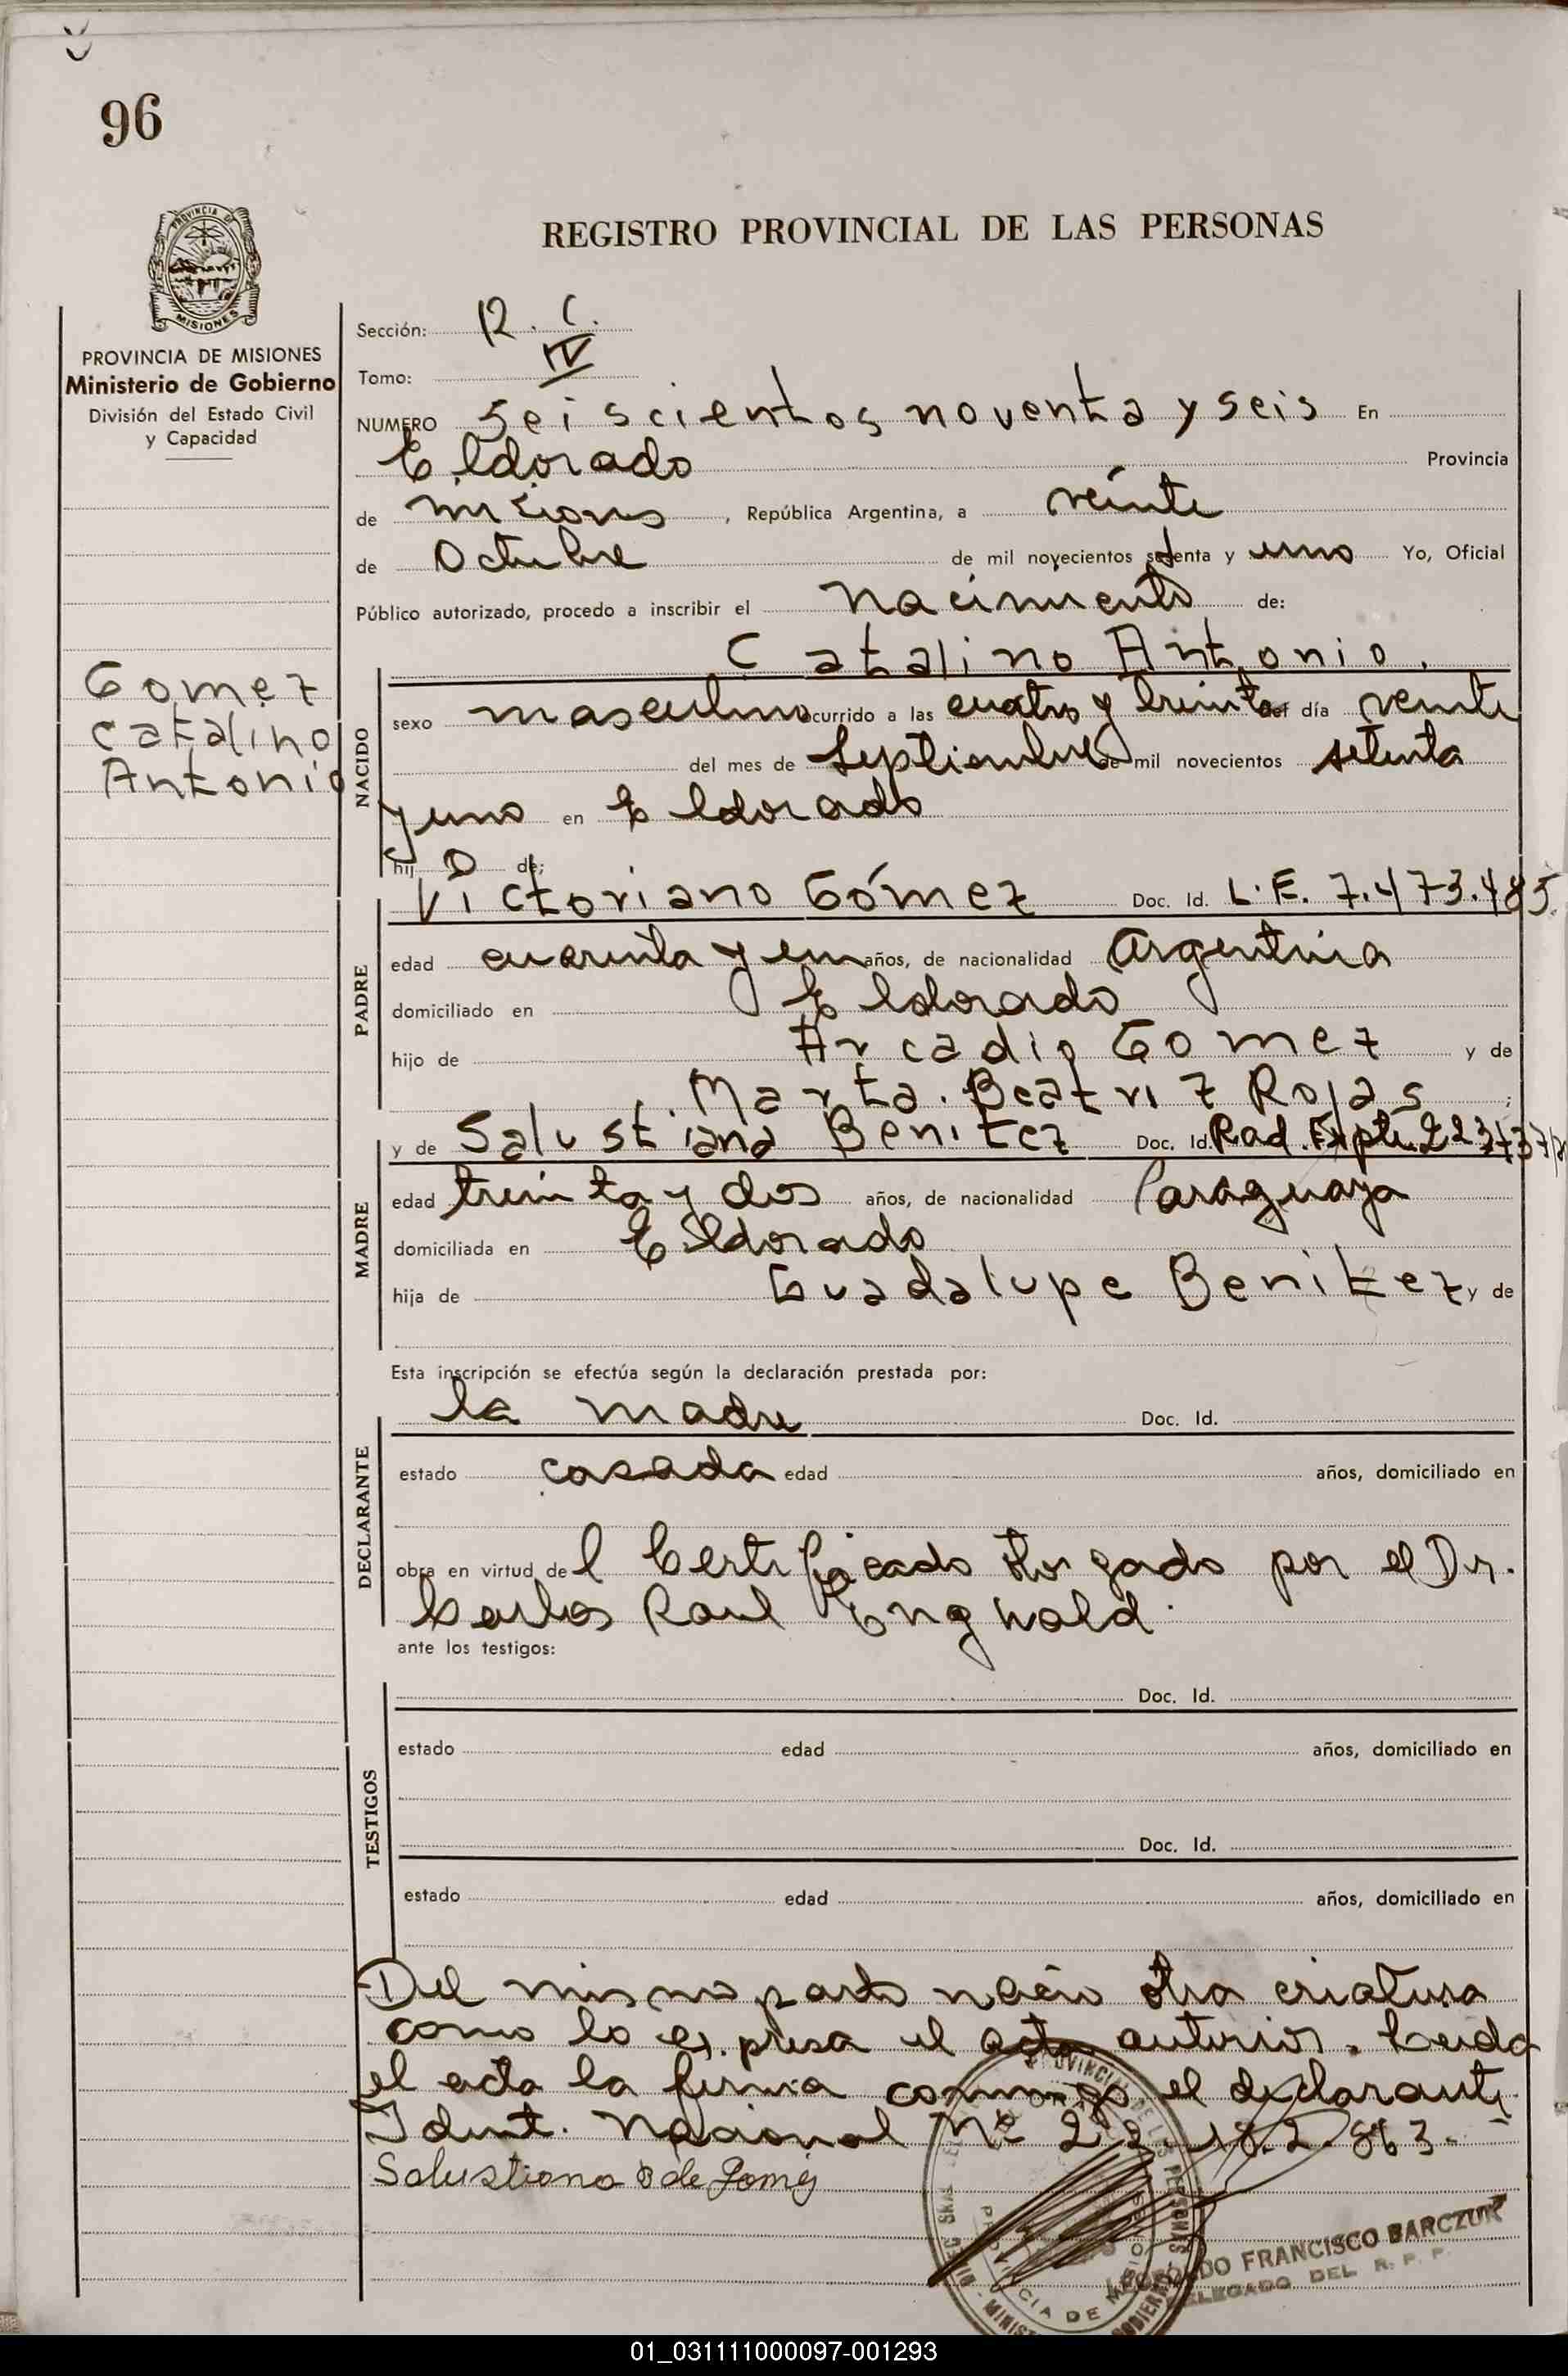 96
PROVINCIA DE
MISIONES
PROVINCIA DE MISIONES
Ministerio de Gobierno
División del Estado Civil
y Capacidad
Gomez
Catalino
Antonio
REGISTRO PROVINCIAL DE LAS PERSONAS
Sección: 12. C.
Tomo: IV
NUMERO Seiscientos noventa y seis En
Eldorado Provincia
de misiones, República Argentina, a veinte
de Octubre de mil novecientos setenta y uno Yo, Oficial
Público autorizado, procedo a inscribir el nacimiento de:
Catalino Antonio.
NACIDO
sexo masculino ocurrido a las cuatro y treinta del día veinte
del mes de Septiembre de mil novecientos setenta
y uno en Eldorado
hijo de:
PADRE
Victoriano Gómez Doc. Id. L.E. 7.473.485.
edad cuarenta y un años, de nacionalidad Argentina
domiciliado en Eldorado
hijo de Arcadio Gomez y de
Marta Beatriz Rojas;
MADRE
y de Salustiana Benitez Doc. Id. Rad. Expte.
edad treinta y dos años, de nacionalidad Paraguaya
domiciliada en Eldorado
hija de Guadalupe Benitez y de
Esta inscripción se efectúa según la declaración prestada por:
DECLARANTE
la madre Doc. Id.
estado casada edad años, domiciliado en
obra en virtud del Certificado otorgado por el Dr.
Carlos Raul Engwald.
ante los testigos:
TESTIGOS
Doc. Id.
estado edad años, domiciliado en
Doc. Id.
estado edad años, domiciliado en
Del mismo parto nació otra criatura
como lo expresa el acta anterior. Leida
el acta la firma conmigo el declarante
Ident. Nacional Nº
Salustiana B de Gomez
LEOPOLDO FRANCISCO BARCZUK
DELEGADO DEL R. P. P.
01_031111000097-001293